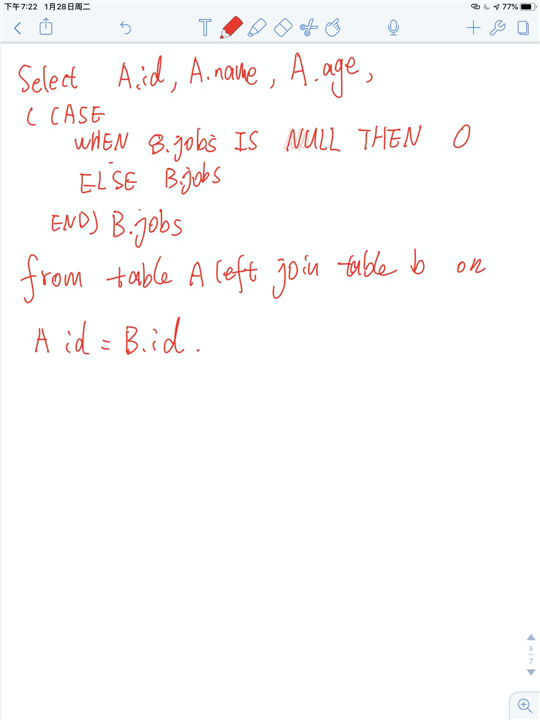 下午7:22 1月28日周二 77%
Select A.id, A.name, A.age,
( CASE
WHEN B.jobs IS NULL THEN 0
ELSE B.jobs
END) B.jobs
from table A left join table b on
A id = B.id.
6
7